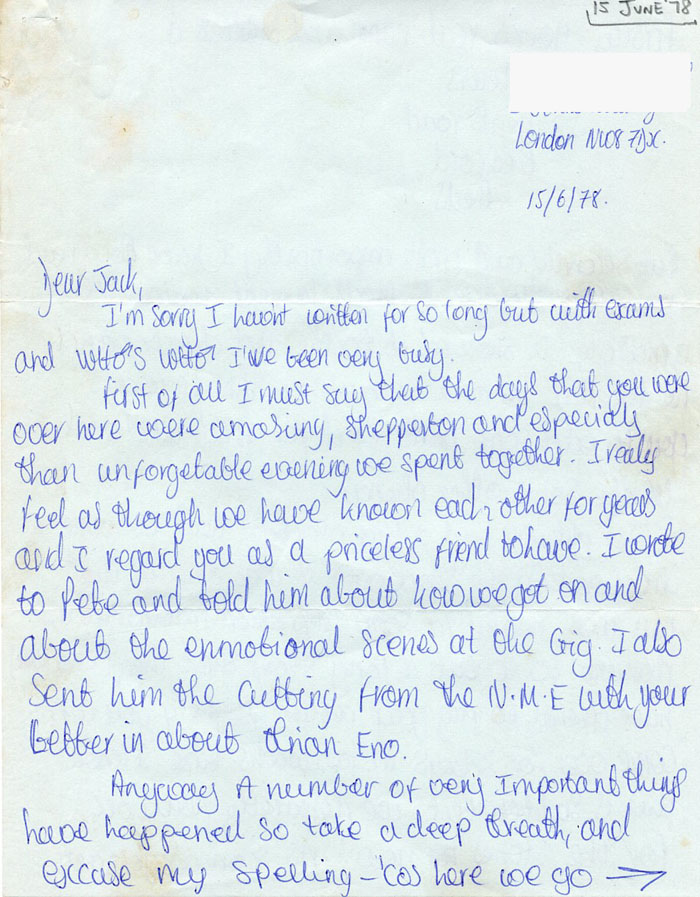 15 JUNE '78
London NW8 7DX.
15/6/78.
Dear Jack,
I'm sorry I havn't written for so long but with exams
and WHO'S WHO I've been very busy.
First of all I must say that the days that you were
over here were amasing, Shepperton and especialy
than unforgetable evening we spent together. I realy
feel as though we have known each other for years
and I regard you as a priceless friend to have. I wrote
to Pete and told him about how we got on and
about the enmotional scenes at the Gig. I also
sent him the cutting from the N.M.E with your
letter in about Brian Eno.
Anyway A number of very Important things
have happened so take a deep breath, and
excuse my spelling - 'cos here we go →